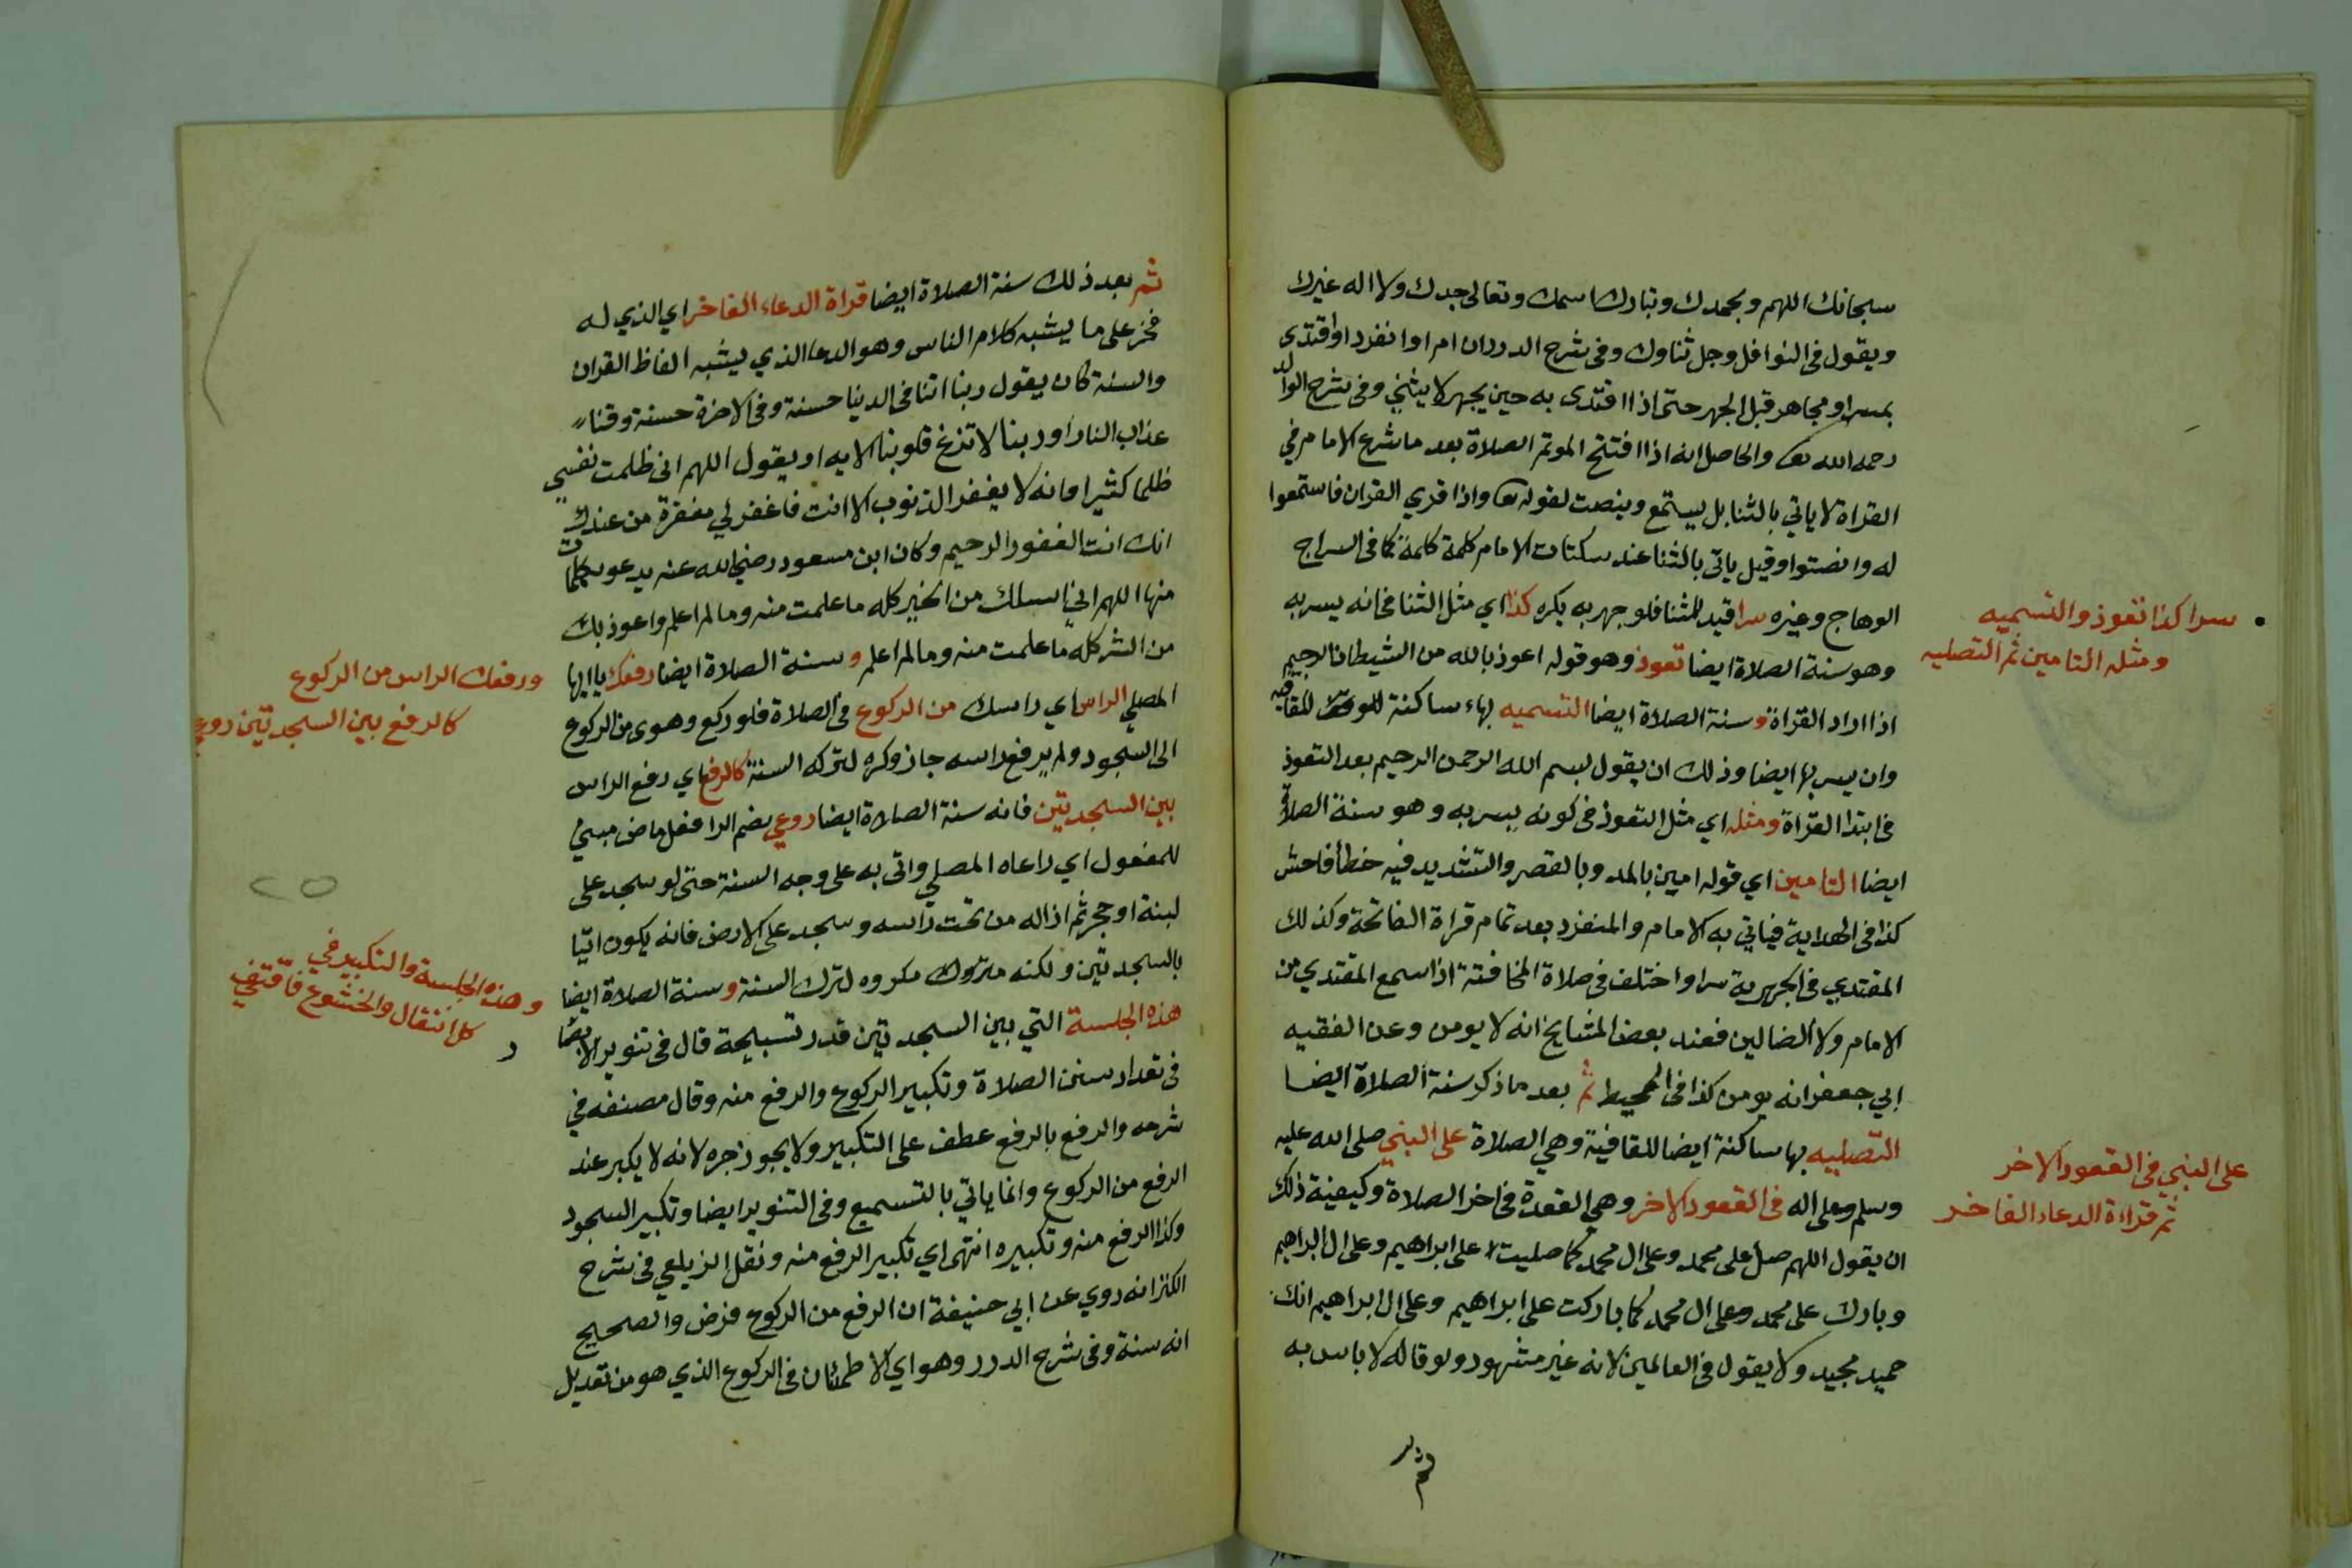 سبحانك اللهم وبحمدك وتبارك اسمك وتعالى جدك ولا اله غيرك
ويقول في النوافل وجل ثناوك وفي شرح الدرران ام او انفرد او اقتدى
بمسر او مجاهر قبل الجهر حتى اذا اقتدى به حين يجهر لا يثني وفي شرح الوالد
رحمه الله تعا والحاصل انه اذا افتتح الموتم الصلاة بعد ما شرع الامام في
القراة لا ياتي بالثنا بل يستمع وينصت لقوله تعا واذا قري القران فاستمعوا
له وانصتوا وقيل ياتي بالثنا عند سكتات الامام كلمة كلمة كما في السراج
الوهاج وغيره سرا قيد للثنا فلو جهر به يكره كذا اي مثل الثنا في انه يسر به
وهو سنة الصلاة ايضا تعوذ وهو قوله اعوذ بالله من الشيطان الرجيم
اذا اراد القراة وسنة الصلاة ايضا التسميه بهاء ساكنة للوقف للقافيه
وان يسر بها ايضا وذلك ان يقول بسم الله الرحمن الرحيم بعد التعوذ
في ابتدا القراة ومثله اي مثل التعوذ في كونه يسر به وهو سنة الصلاة
ايضا التامين اي قوله امين بالمد وبالقصر والتشديد فيه خطأ فاحش
كذا في الهداية فياتي به الامام والمنفرد بعد تمام قراة الفاتحة وكذلك
المقتدي في الجهرية سرا واختلف في صلاة المخافتة اذا سمع المقتدي من
الامام ولا الضالين فعند بعض المشايخ انه لا يومن وعن الفقيه
ابي جعفر انه يومن كذا في المحيط ثم بعد ما ذكر سنة الصلاة ايضا
التصليه بها ساكنة ايضا للقافية وهي الصلاة على النبي صلى الله عليه
وسلم وعلى اله في القعود الاخر وهي القعدة في اخر الصلاة وكيفية ذلك
ان يقول اللهم صل على محمد وعلى ال محمد كما صليت على ابراهيم وعلى ال ابراهيم
وبارك على محمد وعلى ال محمد كما باركت على ابراهيم وعلى ال ابراهيم انك
حميد مجيد ولا يقول في العالمين لانه غير مشهور ولو قاله لا باس به
ثم
سرا كذا تعوذ والتسميه
ومثله التامين ثم التصليه
على النبي في القعود الاخر
ثم قراءة الدعاء الفاخر
ثم بعد ذلك سنة الصلاة ايضا قراة الدعاء الفاخر اي الذي له
فخر على ما يشبه كلام الناس وهو الدعا الذي يشبه الفاظ القران
والسنة كان يقول ربنا اتنا في الدنيا حسنة وفي الاخرة حسنة وقنا
عذاب النار او ربنا لا تزغ قلوبنا الايه او يقول اللهم اني ظلمت نفسي
ظلما كثيرا وانه لا يغفر الذنوب الا انت فاغفر لي مغفرة من عندك
انك انت الغفور الرحيم وكان ابن مسعود رضي الله عنه يدعو بكلمات
منها اللهم اني اسلك من الخير كله ما علمت منه وما لم اعلم واعوذ بك
من الشر كله ما علمت منه وما لم اعلم وسنة الصلاة ايضا رفعك يا ايها
المصلي الراس اي راسك من الركوع في الصلاة فلو ركع وهوى من الركوع
الى السجود ولم يرفع راسه جاز وكره لتركه السنة كالرفع اي رفع الراس
بين السجدتين فانه سنة الصلاة ايضا روعي بضم الرا فعل ماض مبني
للمفعول اي راعاه المصلي واتى به على وجه السنة حتى لو سجد على
لبنة او حجر ثم ازاله من تحت راسه وسجد على الارض فانه يكون اتيا
بالسجدتين ولكنه متروك مكروه لترك السنة وسنة الصلاة ايضا
هذه الجلسة التي بين السجدتين قدر تسبيحة قال في تنوير الابصار
في تعداد سنن الصلاة وتكبير الركوع والرفع منه وقال مصنفه في
شرحه والرفع بالرفع عطف على التكبير ولا يجوز جره لانه لا يكبر عند
الرفع من الركوع وانما ياتي بالتسميع وفي التنوير ايضا وتكبير السجود
وكذا الرفع منه وتكبيره انتهى اي تكبير الرفع منه ونقل الزيلعي في شرح
الكنز انه روي عن ابي حنيفة ان الرفع من الركوع فرض والصحيح
انه سنة وفي شرح الدرر وهو اي الاطمئنان في الركوع الذي هو من تعديل
ورفعك الراس من الركوع
كالرفع بين السجدتين روعي
٢٥
وهذه الجلسة والتكبير في
كل انتقال والخشوع فاقتفي